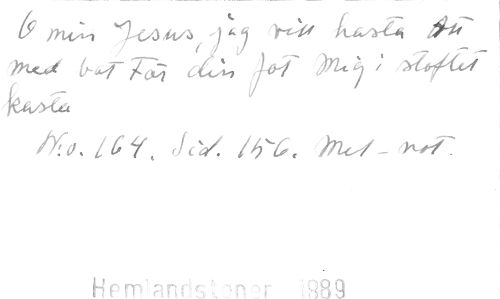 O min Jesus, jag vill hasta Att
med bot För din fot Mig i stoftet
kasta
N:o. 164. Sid. 156. Mel-not.
Hemlandstoner 1889